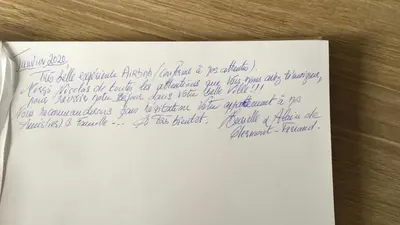 Janvier 2020,
Très belle expérience Airbnb (conforme à nos attentes).
Merci Nicolas de toutes les attentions que vous nous avez témoignées,
pour réussir notre séjour dans votre belle ville!!!
Nous recommanderons sans hésitation votre appartement à nos
ami(es) & famille --- à très bientôt.
& Alain de
Clermont-Ferrand.